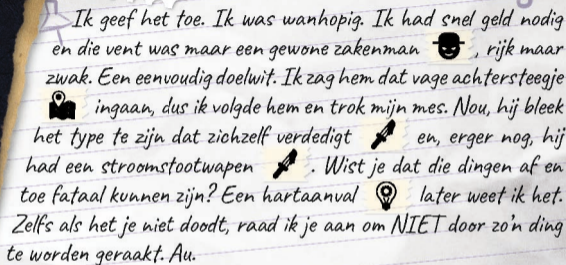 Ik geef het toe. Ik was wanhopig. Ik had snel geld nodig
en die vent was maar een gewone zakenman , rijk maar
zwak. Een eenvoudig doelwit. Ik zag hem dat vage achtersteegje
ingaan, dus ik volgde hem en trok mijn mes. Nou, hij bleek
het type te zijn dat zichzelf verdedigt en, erger nog, hij
had een stroomstootwapen . Wist je dat die dingen af en
toe fataal kunnen zijn? Een hartaanval later weet ik het.
Zelfs als het je niet doodt, raad ik je aan om NIET door zo'n ding
te worden geraakt. Au.